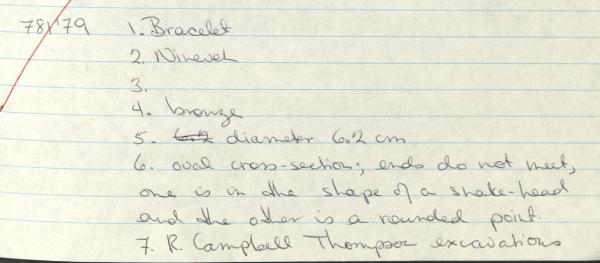 78/'79 1. Bracelet
2. Nineveh
3.
4. bronze
5. 6.2 diameter 6.2 cm
6. oval cross-section; ends do not meet,
one is in the shape of a snake-head
and the other is a rounded point.
7. R. Campbell Thompson excavations